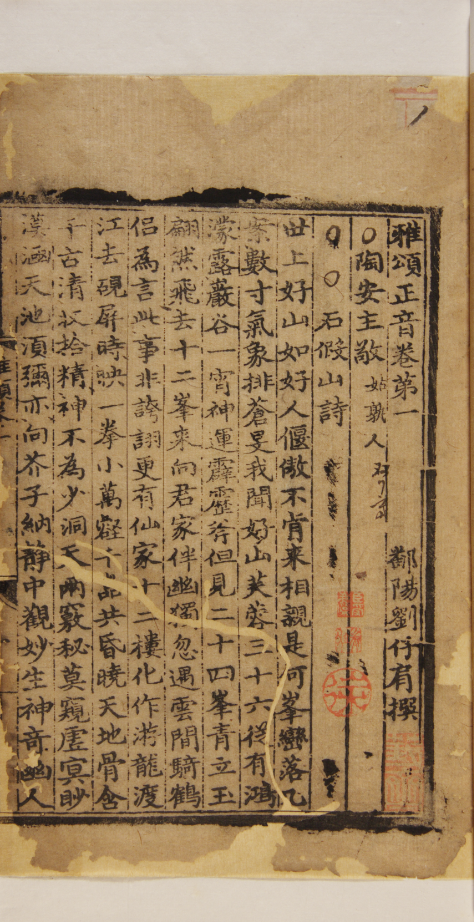 雅頌正音卷第一
鄱陽劉仔肩撰
陶安主敬 姑孰人
石假山詩
世上好山如好人偃傲不肯来相親是何峯巒落几
案數寸氣象排蒼旻我聞好山芙蓉三十六從有鴻
濛露巖谷一宵神運霹靂斧但見二十四峯青立玉
翩然飛去十二峯来向君家伴幽獨忽遇雲間騎鶴
侣為言此事非誇詡更有仙家十二樓化作游龍渡
江去硯屏時映一拳小萬壑千品共昏曉天地骨含
千古清收拾精神不為少洞天兩竅秘莫窺虛冥眇
漠涵天池湏彌亦向芥子納靜中觀妙生神奇幽人